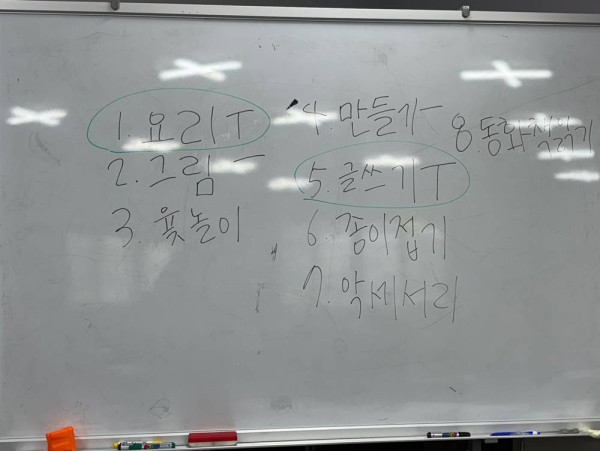 1. 요리 T
2. 그림 一
3. 윷놀이
4. 만들기 一
5. 글쓰기 T
6. 종이접기
7. 악세서리
8. 동화책읽기